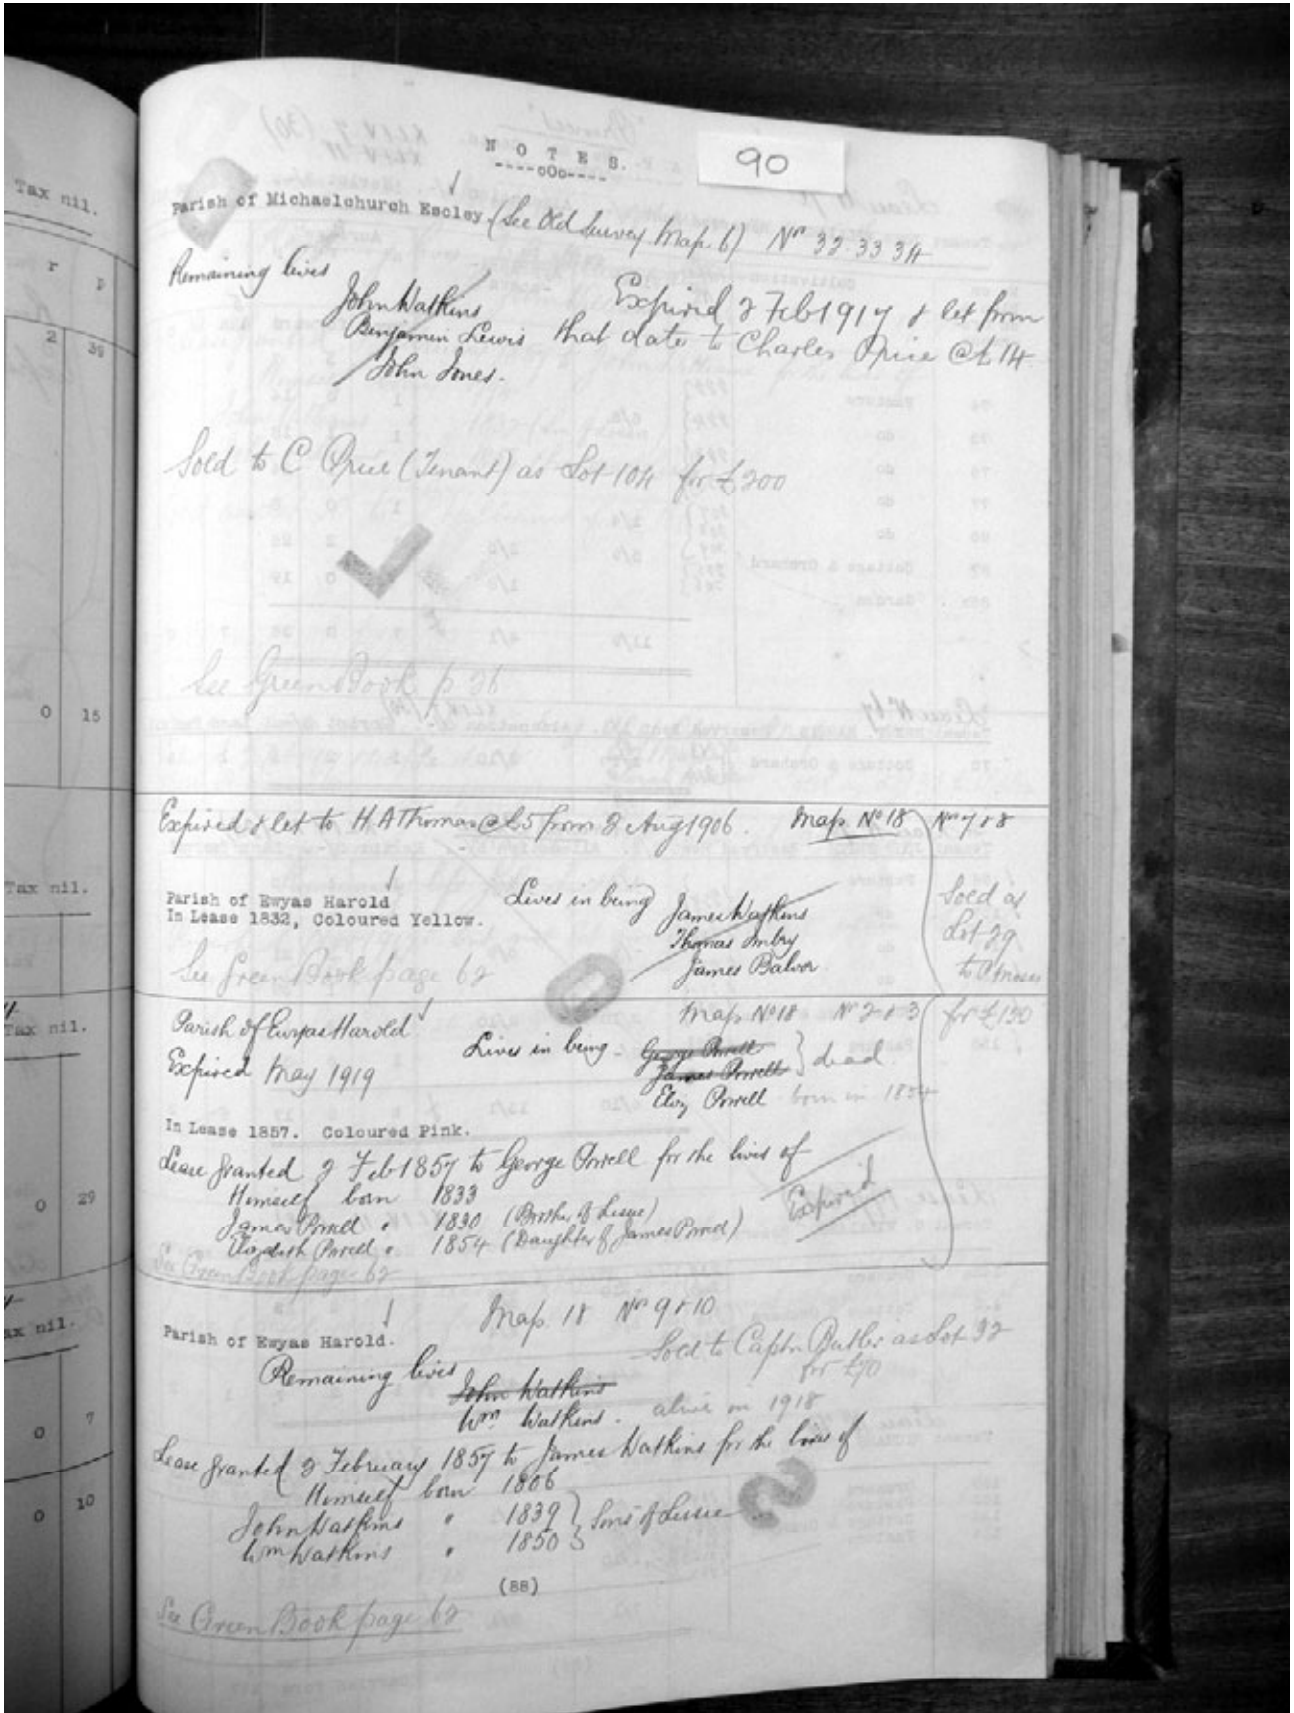 NOTES.
----oOo----
90
Parish of Michaelchurch Escley. (See Old Survey Map. 6) Nos 32.33 34
Remaining lives
John Watkins
Benjamin Lewis
John Jones.
Expired 2 Feb 1917 & let from
that date to Charles Price @ £14
Sold to C Price (Tenant) as Lot 104 for £200
See Green Book p 26
Expired & let to H A Thomas @ £5 from 2 Aug 1906. Map. No 18 Nos 7 & 8
Parish of Ewyas Harold
In Lease 1832, Coloured Yellow.
Lives in being James Watkins
Thomas
James
See Green Book page 62
Sold as
Lot 29
to
for £150
Parish of Ewyas Harold
Map No 18 No 2 & 3
Expired May 1919
Lives in being - George Powell
James Powell } dead
Eliz Powell born in 1854
In Lease 1857. Coloured Pink.
Lease granted 2 Feb 1857 to George Powell for the lives of
Himself born 1833
James Powell " 1830 (Brother of Lessee)
Elizabeth Powell " 1854 (Daughter of James Powell)
Expired
See Green Book page 62
Map. 18 Nos 9 & 10
Parish of Ewyas Harold.
Sold to Captn Butler as Lot 32
for £70
Remaining lives
John Watkins
Wm Watkins. alive in 1918
Lease granted 2 February 1857 to James Watkins for the lives of
Himself born 1806
John Watkins " 1839 } Sons of Lessee
Wm Watkins " 1850
(88)
See Green Book page 62
Tax nil.
r p
2 39
0 15
Tax nil.
Tax nil.
0 29
ax nil.
0 7
0 10